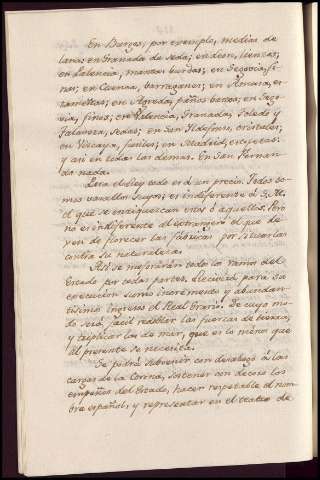 En Burgos, por exemplo, medias de
lana; en Granada de seda; en Leon, lienzos;
en Palencia, mantas burdas; en Segovia, fi-
nas; en Cuenca, barraganes; en Almeria, es-
tameñas; en Agreda, paños bastos; en Sego-
via, finos; en Valencia, Granada, Toledo y
Talavera, sedas; en San Ildefonso, cristales;
en Vizcaya, fusiles; en Madrid, etiquetas;
y asi en todas las demas. En San Fernan-
do nada.
Para el Rey todo es de un precio. Todos so-
mos vasallos suyos; es indiferente á S. M.
el que se enriquezcan estos ó aquellos. Pero
no es indiferente al extrangero el que de-
xen de florecer las fábricas por situarlas
contra su naturaleza.
Asi se mejorarán todos los ramos del
Estado por todas partes. Recivirá para su
execucion sumo incremento y abundan-
tisimos ingresos el Real Erario. De cuyo mo-
do será facil redoblar las fuerzas de tierra,
y triplicar las de mar, que es lo menos que
al presente se necesita.
Se podrá subvenir con desahogo á las
cargas de la Corona, sostener con decoro los
empeños del Estado, hacer respetable el nom-
bre español, y representar en el teatro de